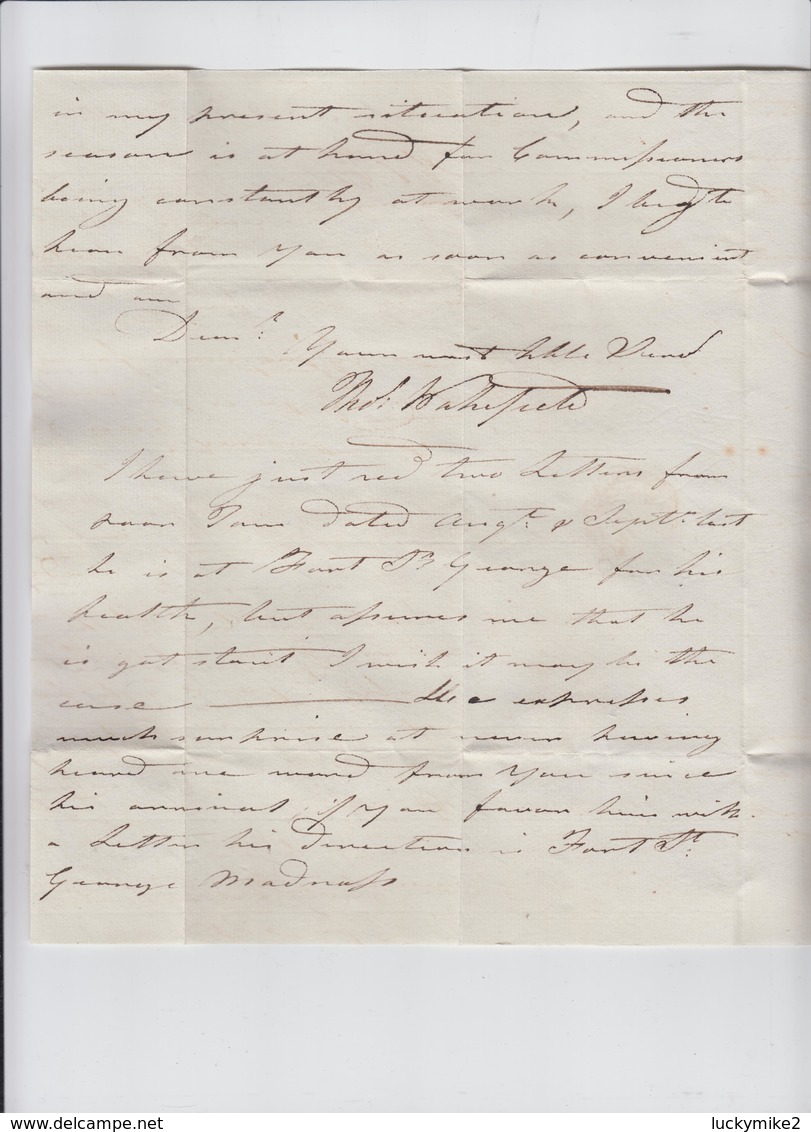 in my present situation, and the
season is at hand for Commissioners
being constantly at work, I beg to
hear from you as soon as convenient
and am
Dear Sr.
Your most hble Servt
Thos: Wakefield
I have just recd two Letters from
poor Tom dated Augt. & Septr. last
he is at Fort St George for his
health, but assures me that he
is got stout I wish it may be the
case ——— He expresses
much surprise at never having
heard one word from you since
his arrival, if you favor him with
a Letter his Direction is Fort St.
George Madrass
www.delcampe.net
luckymike2